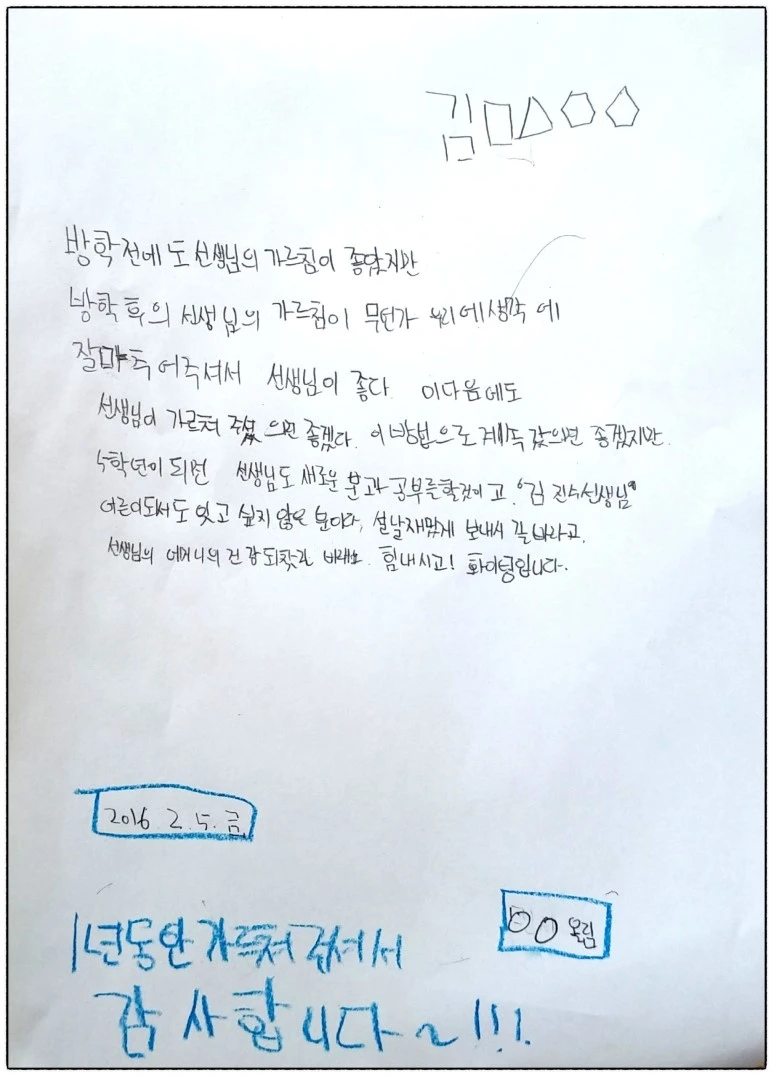 김□△⬡◇
방학전에도 선생님의 가르침이 좋았지만
방학 후의 선생님의 가르침이 무언가 우리에생각에
잘마추어주셔서 선생님이 좋다 이다음에도
선생님이 가르쳐 주셨으면 좋겠다. 이 방법으로 계속 갔으면 좋겠지만.
5학년이 되면 선생님도 새로운 분과 공부를할것이고. "김진수선생님"
어른이되서도 잇고 싶지 않은 분이다, 설날재밌게 보내시길바라고,
선생님의 어머니의 건강 되찾길 바래요. 힘내시고! 화이팅입니다.
2016. 2. 5. 금
○○ 올림
1년동안 가르쳐 주셔서
감사합니다~!!!